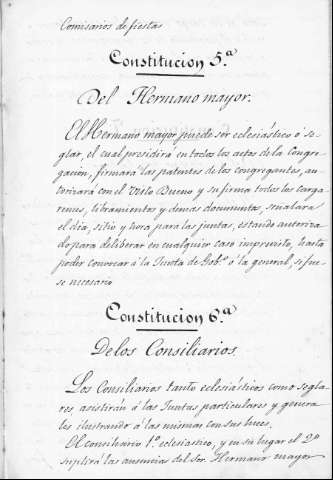 Comisarios de fiestas
Constitucion 5.ª
Del Hermano mayor.
El Hermano mayor puede ser eclesiástico ó se-
glar, el cual presidirá en todos los actos de la Congre-
gación, firmará las patentes de los congregantes, au-
torizará con el Visto Bueno y su firma todos los carga-
remes, libramientos y demás documentos, señalará
el dia, sitio y hora para las juntas, estando autoriza-
do para deliberar en cualquier caso imprevisto, hasta
poder convocar á la Junta de Gob.º ó la general, si fue-
se necesario
Constitucion 6.ª
De los Consiliarios.
Los Consiliarios tanto eclesiásticos como segla-
res asistirán á las Juntas particulares y genera-
les ilustrando á las mismas con sus luces.
El consiliario 1.º eclesiastico, y en su lugar el 2.º
suplirá las ausencias del Sor. Hermano mayor